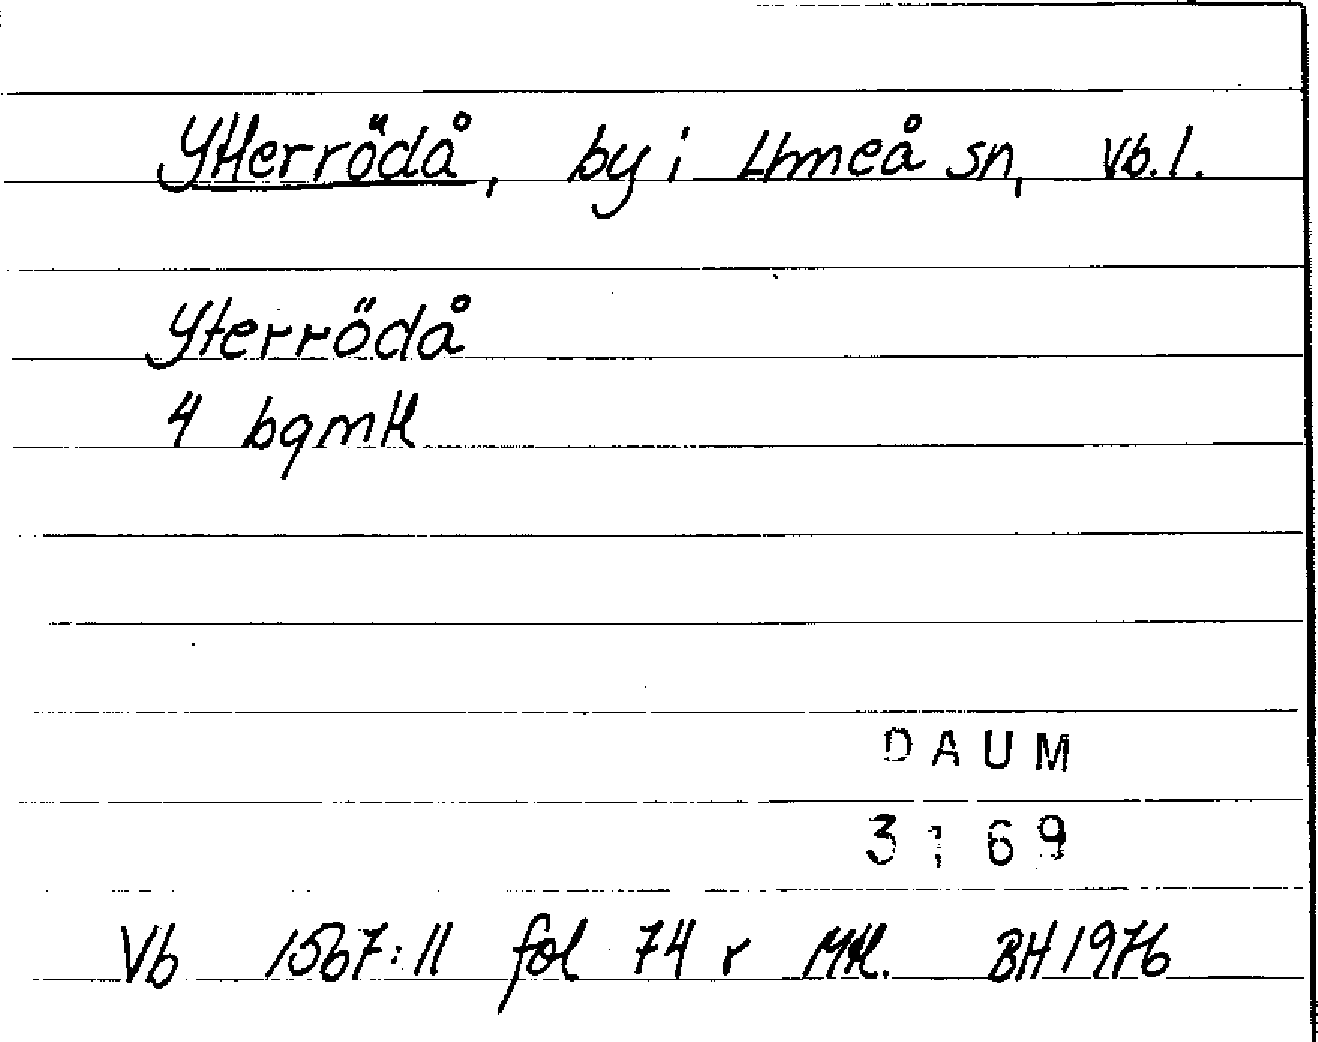 Ytterrödå, by i Umeå sn, Vb.l.
Yterrödå
4 bgmtl
DAUM
3:69
Vb 1567:11 fol 74 r Mtl. BH 1976